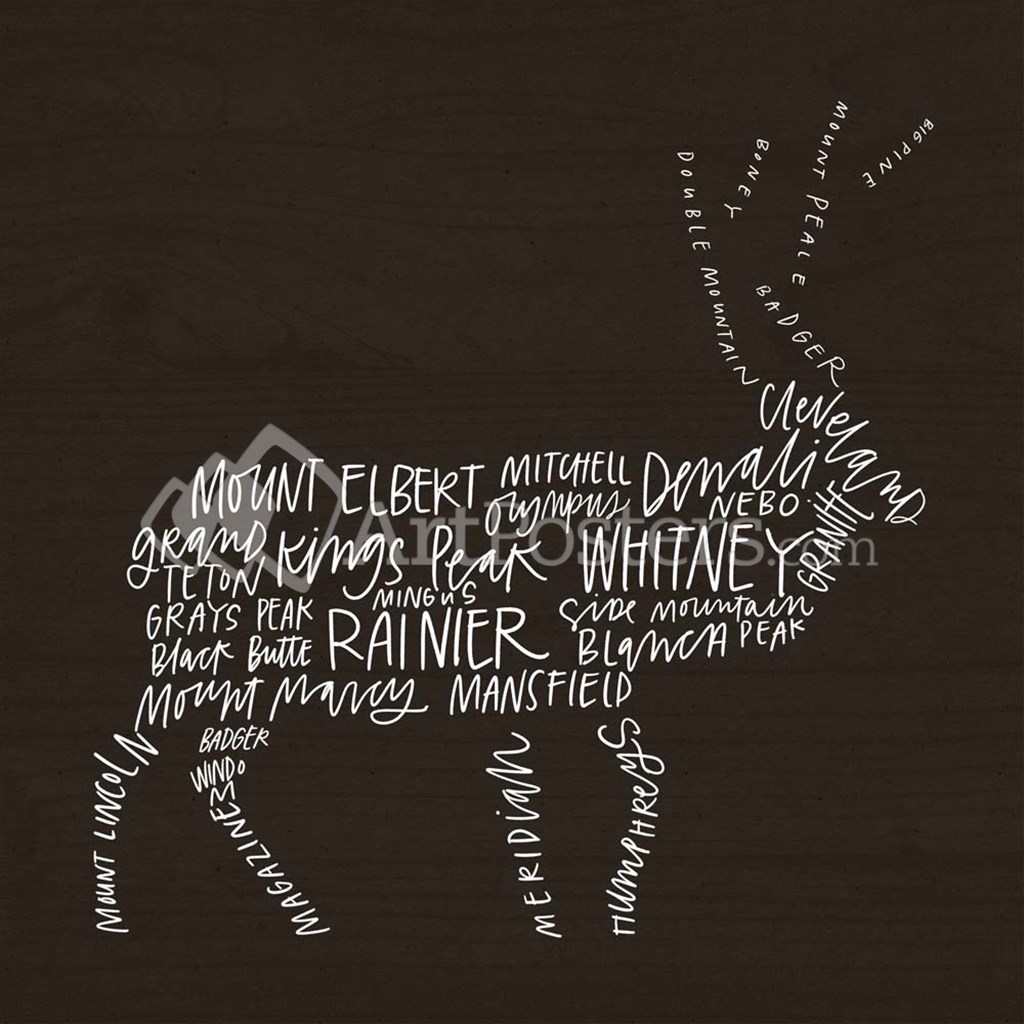 BIG PINE
MOUNT PEALE
BONEY
DOUBLE MOUNTAIN
BADGER
Cleveland
MOUNT ELBERT
MITCHELL
Olympus
Denali
NEBO
GRINNH
Grand
TETON
Kings Peak
WHITNEY
MINGUS
GRAYS PEAK
RAINIER
Side Mountain
Black Butte
Blanca PEAK
Mount Marcy
MANSFIELD
MOUNT LINCOLN
BADGER
WINDOM
MAGAZINE
MERIDIAN
HUMPHREYS
ArtPosters.com